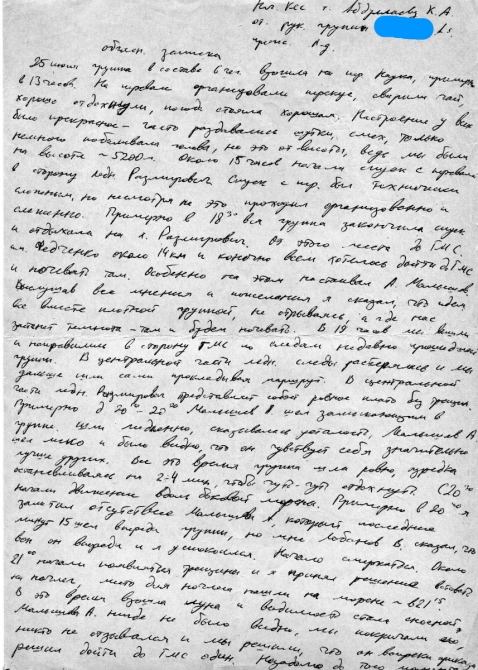 Нач. КСС т. Абдрашаеву К. А.
от рук. группы
объясн. записка
25 июля группа в составе 6 чел. взошла на пер. Наука, примерно
в 13 часов. На перевале организовали перекус, сварили чай,
хорошо отдохнули, погода стояла хорошая. Настроение у всех
было прекрасное – часто раздавались шутки, смех, только
немного побаливала голова, но это от высоты, ведь мы были
на высоте ~ 5200 м. Около 15 часов начали спуск с перевала
в сторону ледн. Розмирович. Спуск с пер. был технически
сложным, но несмотря на это проходил организованно и
слаженно. Примерно в 18³⁰ вся группа закончила спуск
и отдыхала на л. Розмирович. От этого места до ГМС
им. Федченко около 14 км и конечно всем хотелось дойти до ГМС
и ночевать там. Особенно на этом настаивал А. Малышев
Выслушав все мнения и пожелания я сказал, что идем
все вместе плотной группой, не отрываясь, а где нас
застанет темнота – там и будем ночевать. В 19 часов мы вышли
и направились в сторону ГМС по следам недавно прошедшей
группы. В центральной части ледн. следы растерялись и мы
дальше шли сами прокладывая маршрут. В центральной
части ледн. Розмирович представляет собой ровное плато без трещин.
Примерно д 20⁰⁰ - 20²⁰ Малышев А. шел замыкающим в
группе. Шли медленно, сказывалась усталость, Малышев А
шел легко и было видно, что он чувствует себя значительно
лучше других. Все это время группа шла ровно, изредка
останавливаясь на 2-4 мин, чтобы чуть-чуть отдохнуть. С 20³⁰
начали движение вдоль боковой морены. Примерно в 20⁴⁰ я
заметил отсутствие Малышева А. который, последние
минут 15 шел впереди группы, но мне Лобанов В. сказал, что
вон он впереди и я успокоился. Начало смеркаться. Около
21⁰⁰ начали появляться трещины и я принял решение вставать
на ночлег, место для ночлега нашли на морене ~ в 21¹⁵.
В это время взошла луна и видимость стала сносной,
Малышева А. нигде не было видно, мы покричали его
никто не отзывался и мы решили, что он вопреки приказа
решил дойти до ГМС один. Незадолго до того